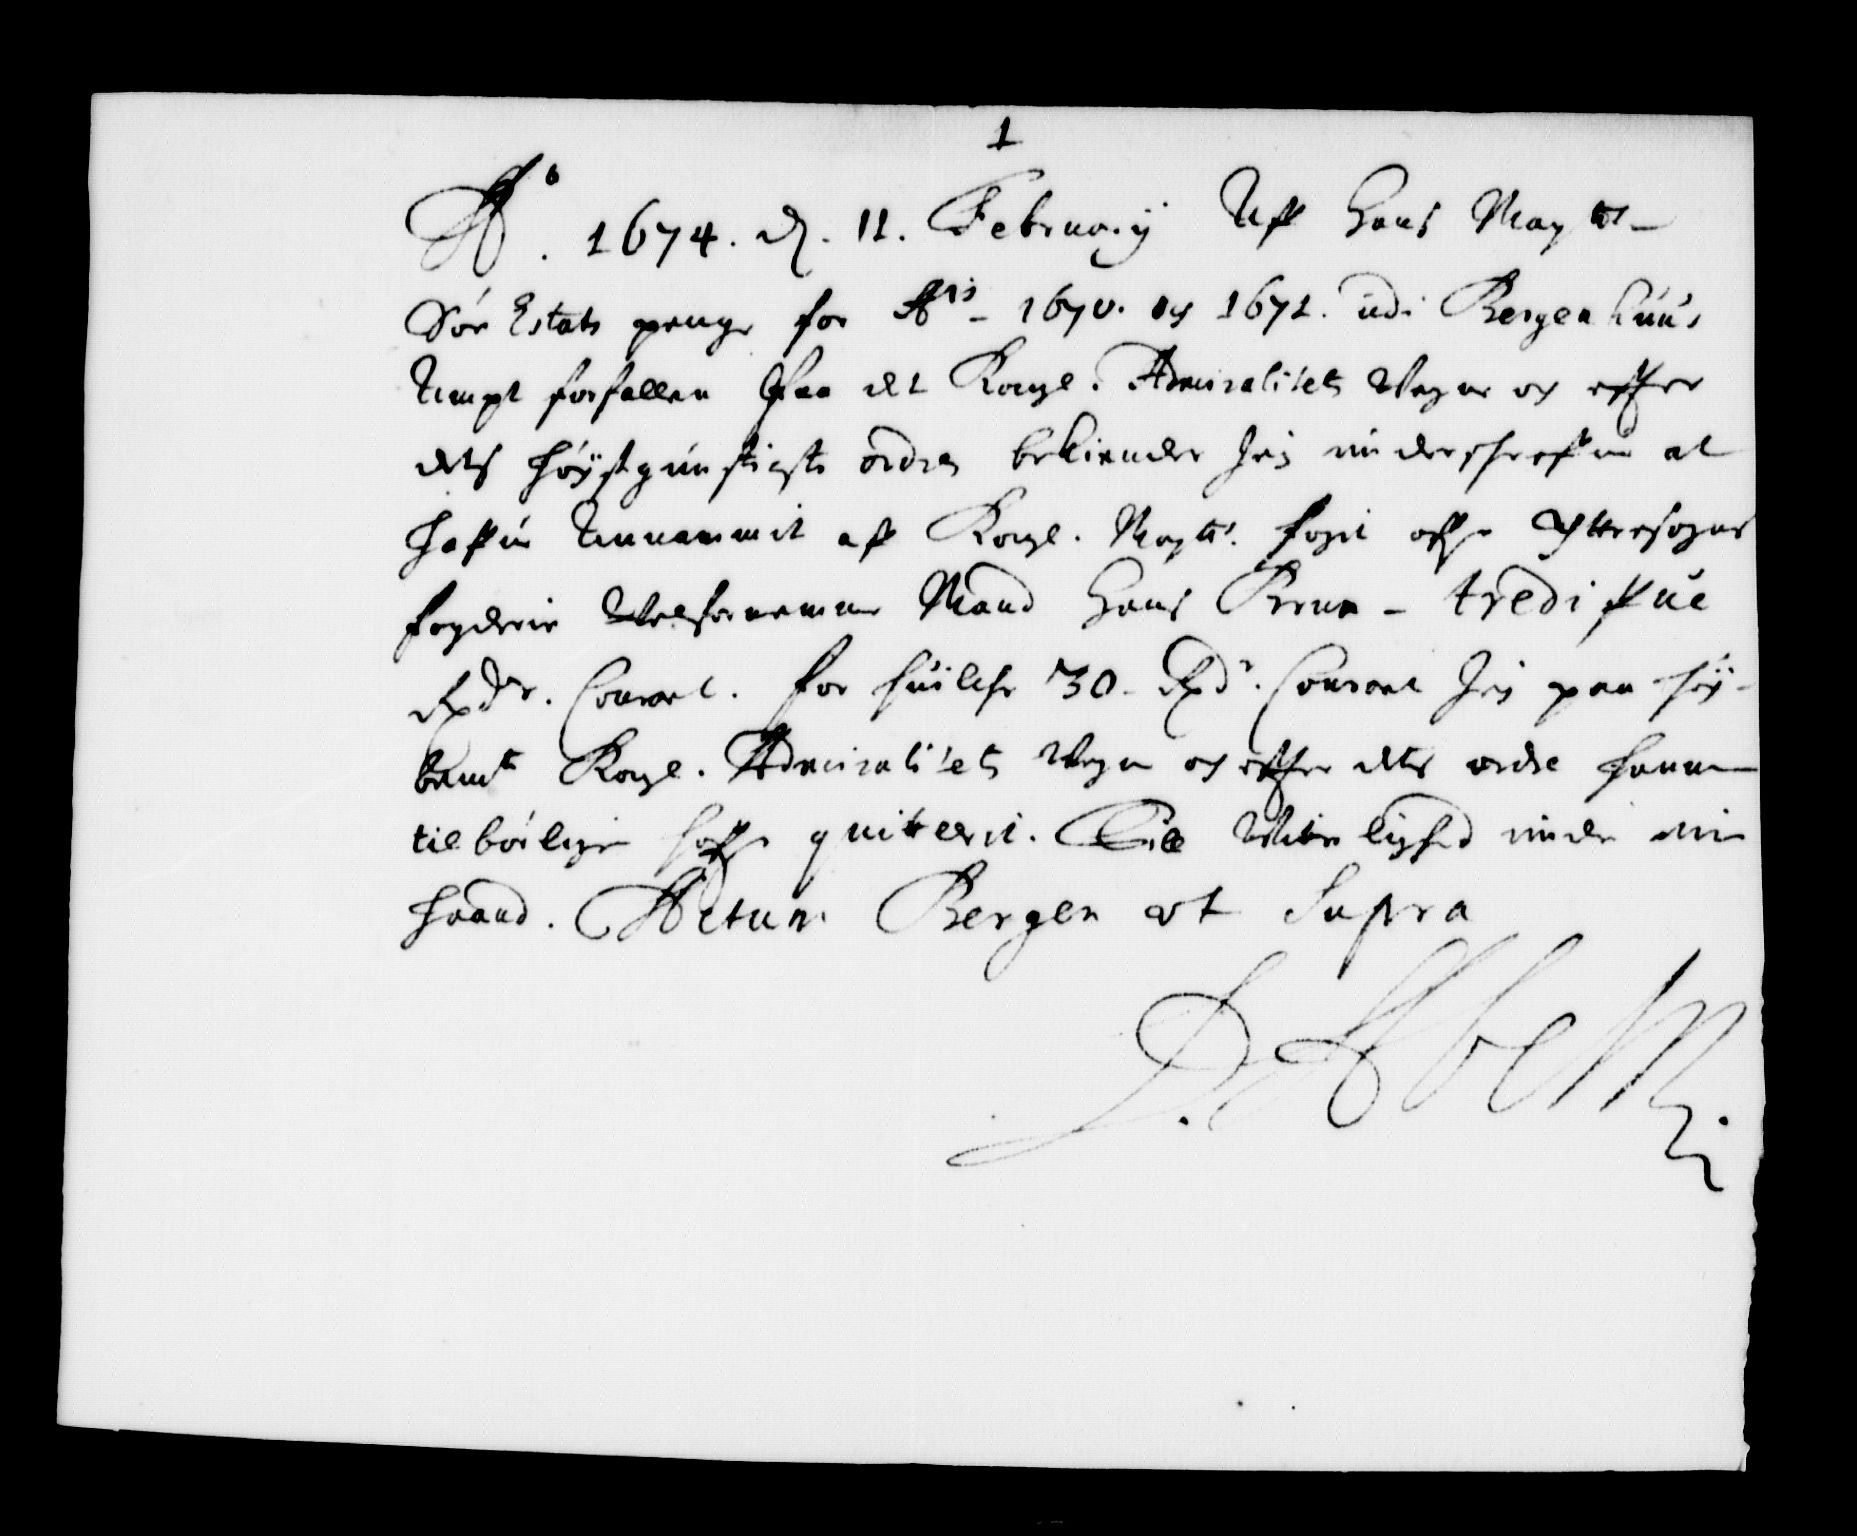 1
Ao. 1674. d. 11. February Aff Hans Maytts
Söe Estats penge for Ais 1670. og 1671. udi Bergenhuus
Ampt forfallen Paa det Kongl. Admiralitets Vegne og effter
dets höystgunstigste ordre bekiender Jeg underschrefne at
hafue Annammit aff Kongl. Maytts. fogit offr
fogderie Velfornemme Mand Hans Brun - tredifue
Rxdr. Courant. for huilche 30 Rxdr. Courant Jeg paa höy-
bemte Kongl. Admiralitets Vegne og effter dets ordre hannem
tilbörligen hoffr quitterit. Till Vitterlighed under min
haand. Actum Bergen ut Supra